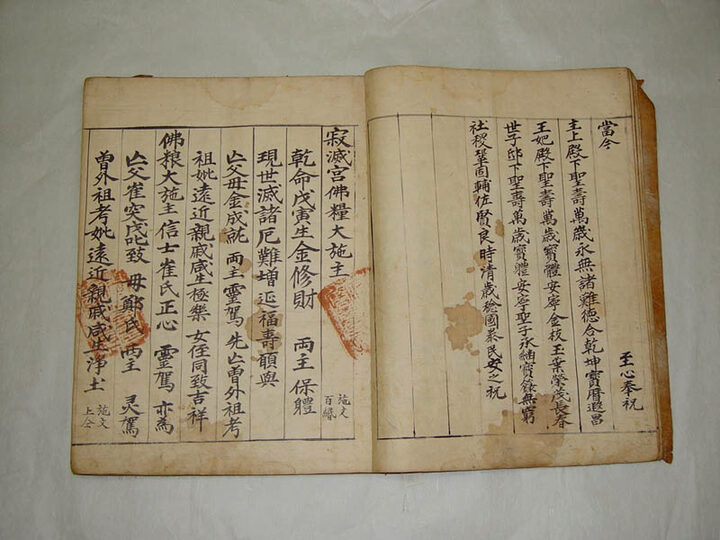 至心奉祝
當今
主上殿下聖壽萬歲永無諸難德合乾坤寶曆遐昌
王妃殿下聖壽萬歲寶體安寧金枝玉葉榮茂長春
世子邸下聖壽萬歲寶體安寧聖子承紬寶籙無窮
社稷鞏固輔佐賢良時清歲稔國泰民安之祝
寂滅宮佛糧大施主
乾命戊寅生金修財 兩主 保體 施文百緡
現世滅諸厄難增延福壽願與
亡父母金成就 兩主 靈駕 先亡曾外祖考
祖妣遠近親戚咸生極樂 女侄同致吉祥
佛粮大施主信士崔氏正心 靈駕 亦爲
亡父崔突戊 致 母鄭氏 兩主 灵駕
曾外祖考妣遠近親戚咸生淨土 施文上仝